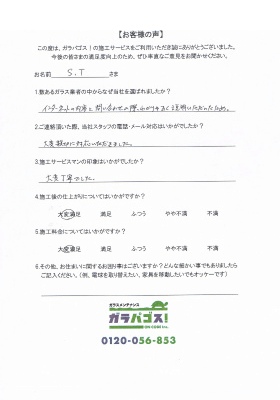 【お客様の声】
この度は、ガラパゴス！の施工サービスをご利用いただき誠にありがとうございました。
今後の皆さまの満足度向上のため、ぜひ率直なご意見をお聞かせください。
お名前 S.T さま
1.数あるガラス業者の中からなぜ当社を選ばれましたか？
インターネットの内容と問い合わせの際、わかりやすくご説明いただいたため。
2.ご連絡頂いた際、当社スタッフの電話・メール対応はいかがでしたか？
大変親切に対応いただきました。
3.施工サービスマンの印象はいかがでしたか？
大変丁寧でした。
4.施工後の仕上がりについてはいかがですか？
大変満足 満足 ふつう やや不満 不満
5.施工料金についてはいかがですか？
大変満足 満足 ふつう やや不満 不満
6.その他、お住まいに関するお困り事はございますか？どんな細かい事でもありましたら
ご記入ください。（例、電球を取り替えたい、家具を移動したいでもオッケーです）
ガラスメンテナンス
ガラパゴス！
ON-COM Inc.
0120-056-853